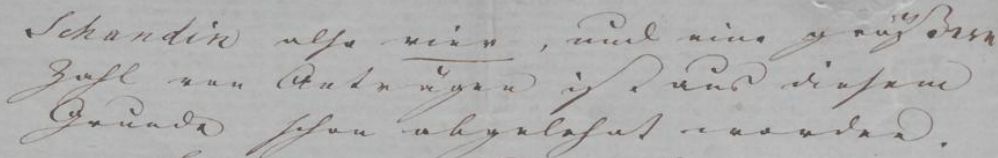 Schandin also vier, und eine größere
Zahl von Anträgen ist aus diesem
Grunde schon abgelehnt worden.